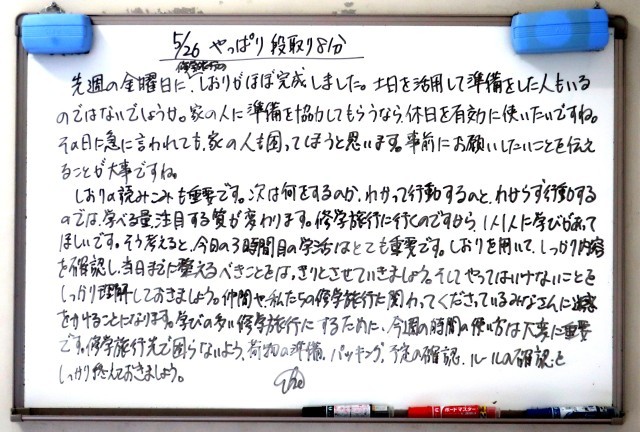 5/26 やっぱり段取り8分
修学旅行の
先週の金曜日に、しおりがほぼ完成しました。土日を活用して準備をした人もいる
のではないでしょうか。家の人に準備を協力してもらうなら、休日を有効に使いたいですね。
その日に急に言われても、家の人も困ってしまうと思います。事前にお願いしたいことを伝え
ることが大事ですね。
しおりの読みこみも重要です。次は何をするのか、わかって行動するのと、わからず行動する
のでは、学べる量、注目する質が変わります。修学旅行に行くのですから、1人1人に学びがあって
ほしいです。そう考えると、今日の3時間目の学活はとても重要です。しおりを用いて、しっかり内容
を確認し、当日までに整えるべきことをはっきりとさせていきましょう。そしてやってはいけないことを
しっかり理解しておきましょう。仲間や、私たちの修学旅行に関わってくださっているみなさんに迷惑
をかけることになります。学びの多い修学旅行にするために、今週の時間の使い方は大変に重要
です。修学旅行先で困らないよう、荷物の準備、パッキング、予定の確認、ルールの確認を
しっかり終えておきましょう。
ボードマスター